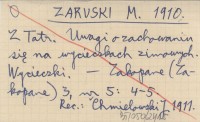 ZARUSKI M. 1910.
Z Tatr. Uwagi o zachowaniu
się na wycieczkach zimowych.
Wycieczki. – Zakopane (Za-
kopane) 3, nr 5: 4-5.
Rec.: Chmielowski J. 1911.